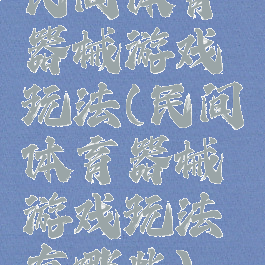 民间体育
器械游戏
玩法(民间
体育器械
游戏玩法
有哪些)